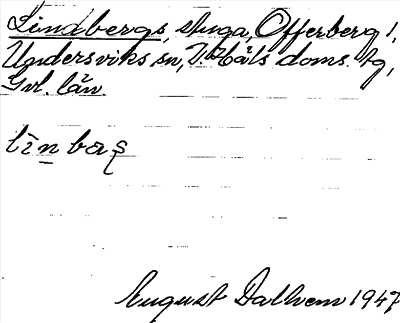 Lindbergs, stuga, Offerberg 1,
Undersviks sn, V. Häls doms. tg,
Gvl. län.
lìn bæṣ
August Dalhem 1947